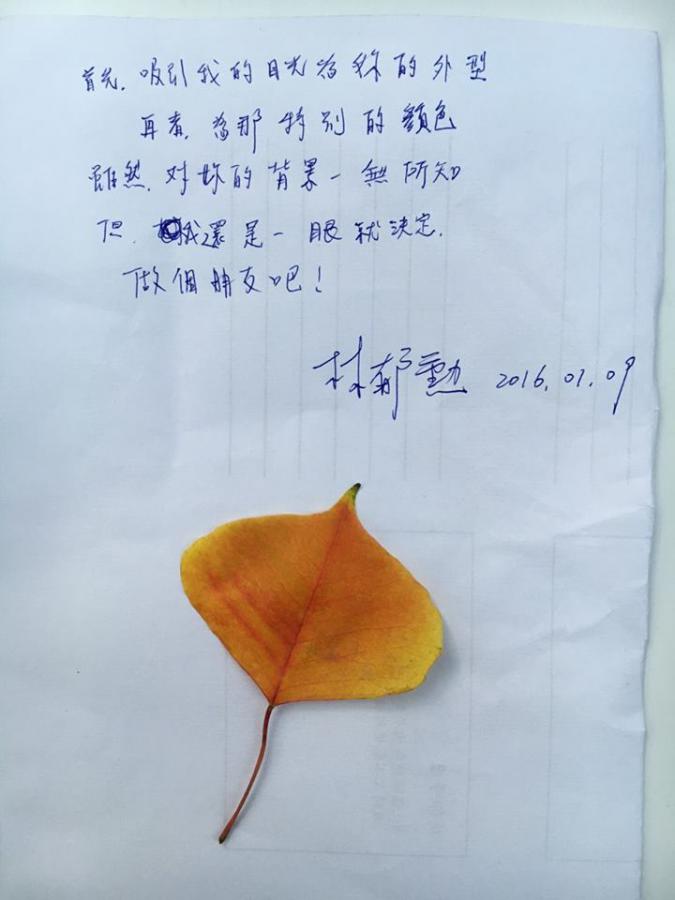 首先,吸引我的目光為你的外型
再者,為那特別的顏色
雖然,對妳的背景一無所知
但,我還是一眼就決定,
做個朋友吧!
林郁勳 2016.01.09